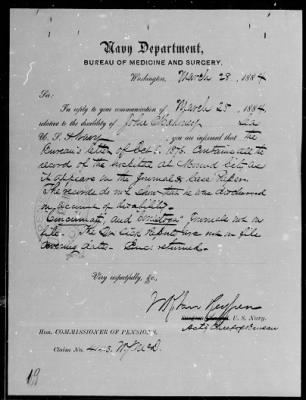 Navy Department,
BUREAU OF MEDICINE AND SURGERY,
Washington, March 28, 1884
Sir:
In reply to your communication of March 25, 1884,
relative to the disability of John
U. S. Navy, you are informed that the
Bureau's letter of 1876. Contains all the
record of the at Mound City as
it appears on the Journal & Case Paper.
The records do not show that he was discharged
on account of disability.
Cincinnati, and Journals not on
file. The Case Papers are not on file
covering dates. returned.
Very respectfully, &c.,
U. S. Navy.
Hon. COMMISSIONER OF PENSIONS.
Claim No.